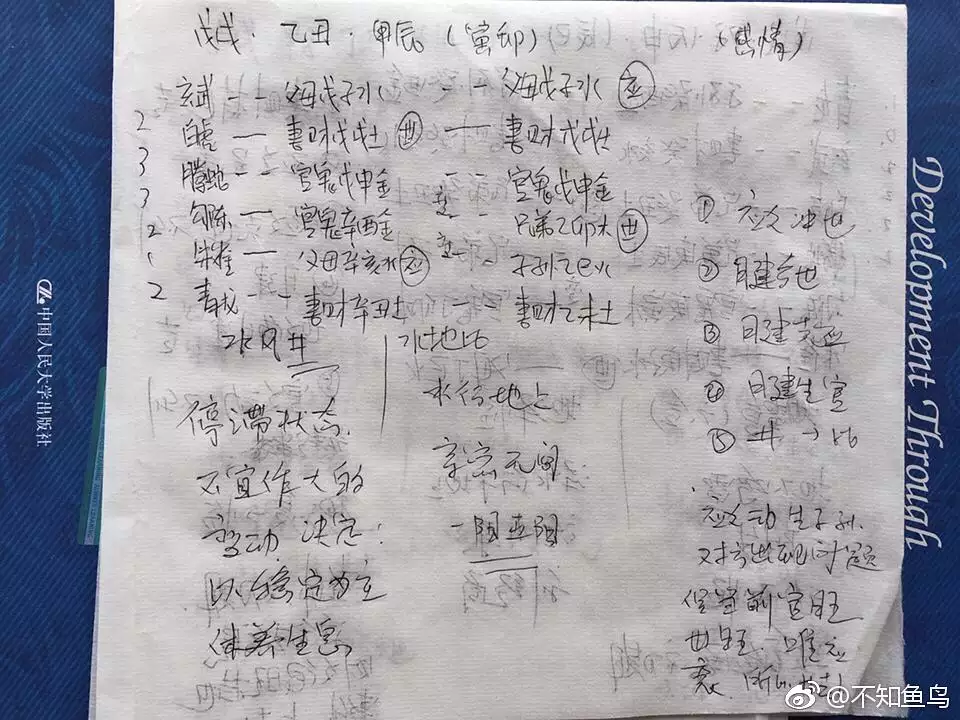 戊戌.乙丑.甲辰(寅卯) (感情)
玄武 -- 父母戊子水 -- 父母戊子水 应
2 白虎 — 妻财戊戌土 世 — 妻财戊戌土
3 腾蛇 -- 官鬼戊申金 -- 官鬼戊申金
3 勾陈 — 官鬼辛酉金 -- 兄弟乙卯木 世
2 朱雀 — 父母辛亥水 应 -- 子孙乙巳火
2 青龙 -- 妻财辛丑土 -- 妻财乙未土
水风井
水地比
停滞状态.
不宜作大的
变动 决定:
以稳定为主
休养生息
水行地上
亲密无间
一阳五阴
① 应爻冲世
② 日建合世
③ 日建克应
④ 日建生官
⑤ 井→比
应爻动生子孙.
对方出现问题
世旺.唯应
中国人民大学出版社
Development Through
@不知鱼鸟